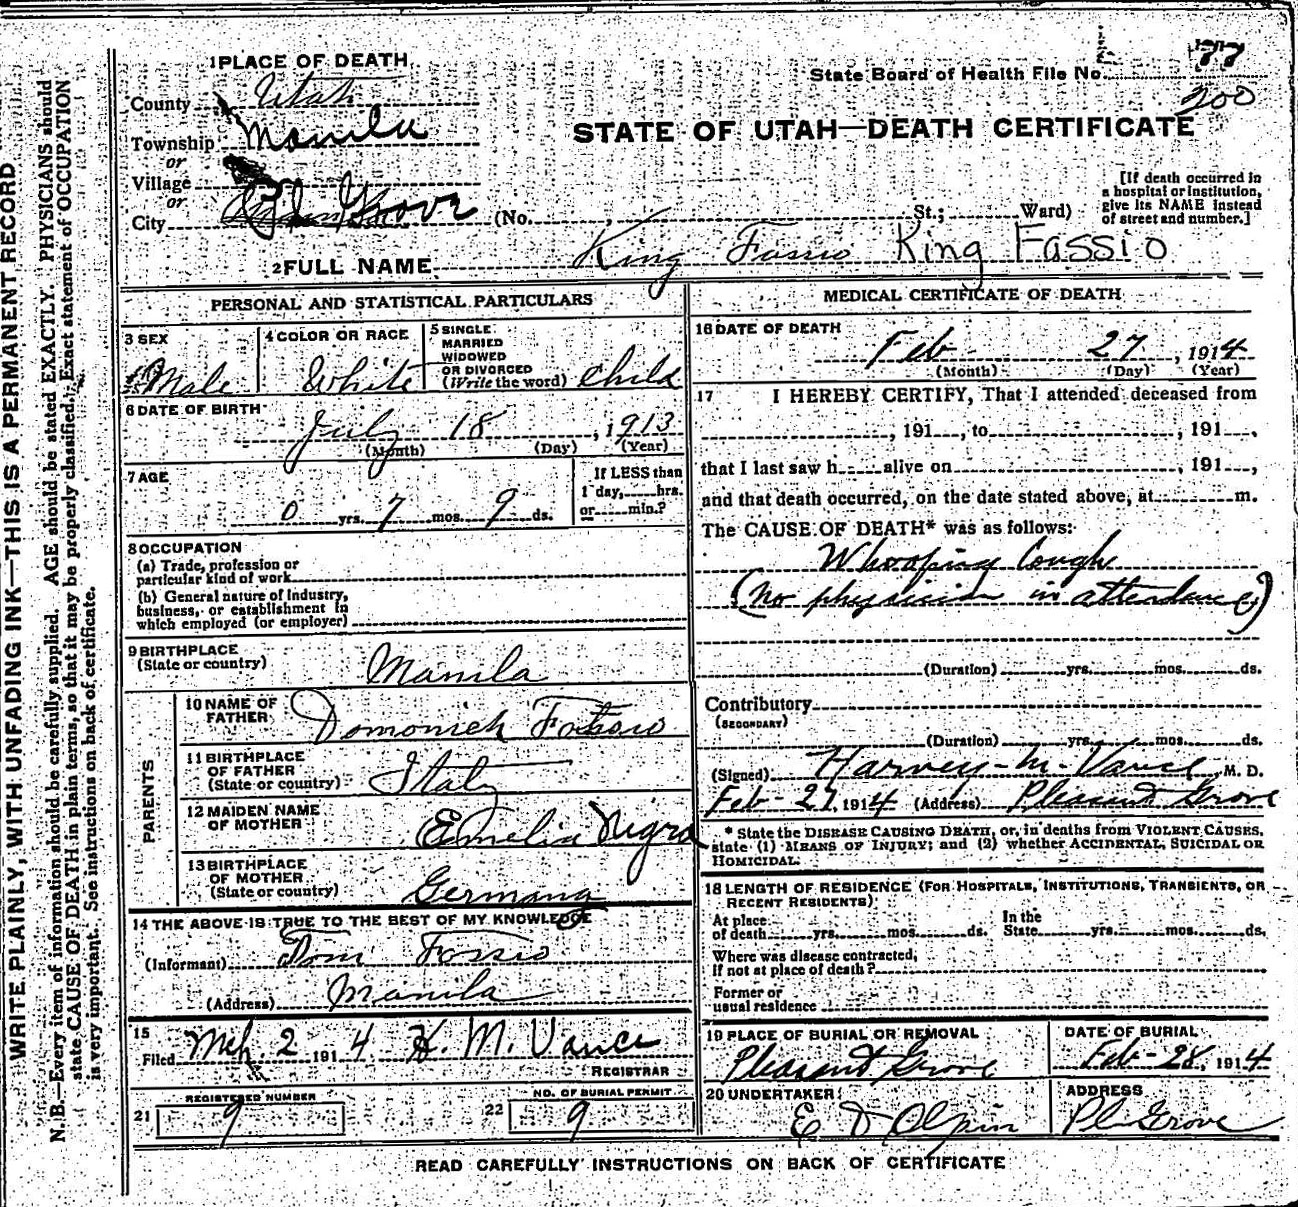 WRITE PLAINLY, WITH UNFADING INK—THIS IS A PERMANENT RECORD
N.B.—Every item of information should be carefully supplied. AGE should be stated EXACTLY. PHYSICIANS should
state CAUSE OF DEATH in plain terms, so that it may be properly classified. Exact statement of OCCUPATION
is very important. See instructions on back of certificate.
1 PLACE OF DEATH
County Utah
Township Manila
or
Village
or
City Grove (No. , St.; Ward)
State Board of Health File No. 77
200
STATE OF UTAH—DEATH CERTIFICATE
[If death occurred in
a hospital or institution,
give its NAME instead
of street and number.]
2 FULL NAME King Fassio King Fassio
PERSONAL AND STATISTICAL PARTICULARS
3 SEX
Male
4 COLOR OR RACE
White
5 SINGLE
MARRIED
WIDOWED
OR DIVORCED
(Write the word) Child
6 DATE OF BIRTH
July 18, 1913
(Month) (Day) (Year)
7 AGE
0 yrs. 7 mos. 9 ds.
If LESS than
1 day, hrs.
or min.?
8 OCCUPATION
(a) Trade, profession or
particular kind of work
(b) General nature of Industry,
business, or establishment in
which employed (or employer)
9 BIRTHPLACE
(State or country) Manila
PARENTS
10 NAME OF
FATHER Domonick Fassio
11 BIRTHPLACE
OF FATHER
(State or country) Italy
12 MAIDEN NAME
OF MOTHER Emelia Nigra
13 BIRTHPLACE
OF MOTHER
(State or country) Germany
14 THE ABOVE IS TRUE TO THE BEST OF MY KNOWLEDGE
(Informant) Dom Fossio
(Address) Manila
15
Filed Mch. 2 191 4. H. M. Vance
REGISTRAR
REGISTERED NUMBER
21 9
NO. OF BURIAL PERMIT
22 9
MEDICAL CERTIFICATE OF DEATH
16 DATE OF DEATH
Feb 27, 1914
(Month) (Day) (Year)
17 I HEREBY CERTIFY, That I attended deceased from
, 191 , to , 191 ,
that I last saw h alive on , 191 ,
and that death occurred, on the date stated above, at m.
The CAUSE OF DEATH* was as follows:
Whooping Cough
(No physician in attendance)
(Duration) yrs. mos. ds.
Contributory
(SECONDARY)
(Duration) yrs. mos. ds.
(Signed) Harvey M. Vance, M. D.
Feb-27, 1914 (Address) Pleasant Grove
* State the DISEASE CAUSING DEATH, or, in deaths from VIOLENT CAUSES,
state (1) MEANS OF INJURY; and (2) whether ACCIDENTAL, SUICIDAL OR
HOMICIDAL.
18 LENGTH OF RESIDENCE (FOR HOSPITALS, INSTITUTIONS, TRANSIENTS, OR
RECENT RESIDENTS)
At place
of death yrs. mos. ds.
In the
State yrs. mos. ds.
Where was disease contracted,
if not at place of death?
Former or
usual residence
19 PLACE OF BURIAL OR REMOVAL
Pleasant Grove
DATE OF BURIAL
Feb-28, 1914
20 UNDERTAKER
E D Olpin
ADDRESS
Pl Grove
READ CAREFULLY INSTRUCTIONS ON BACK OF CERTIFICATE